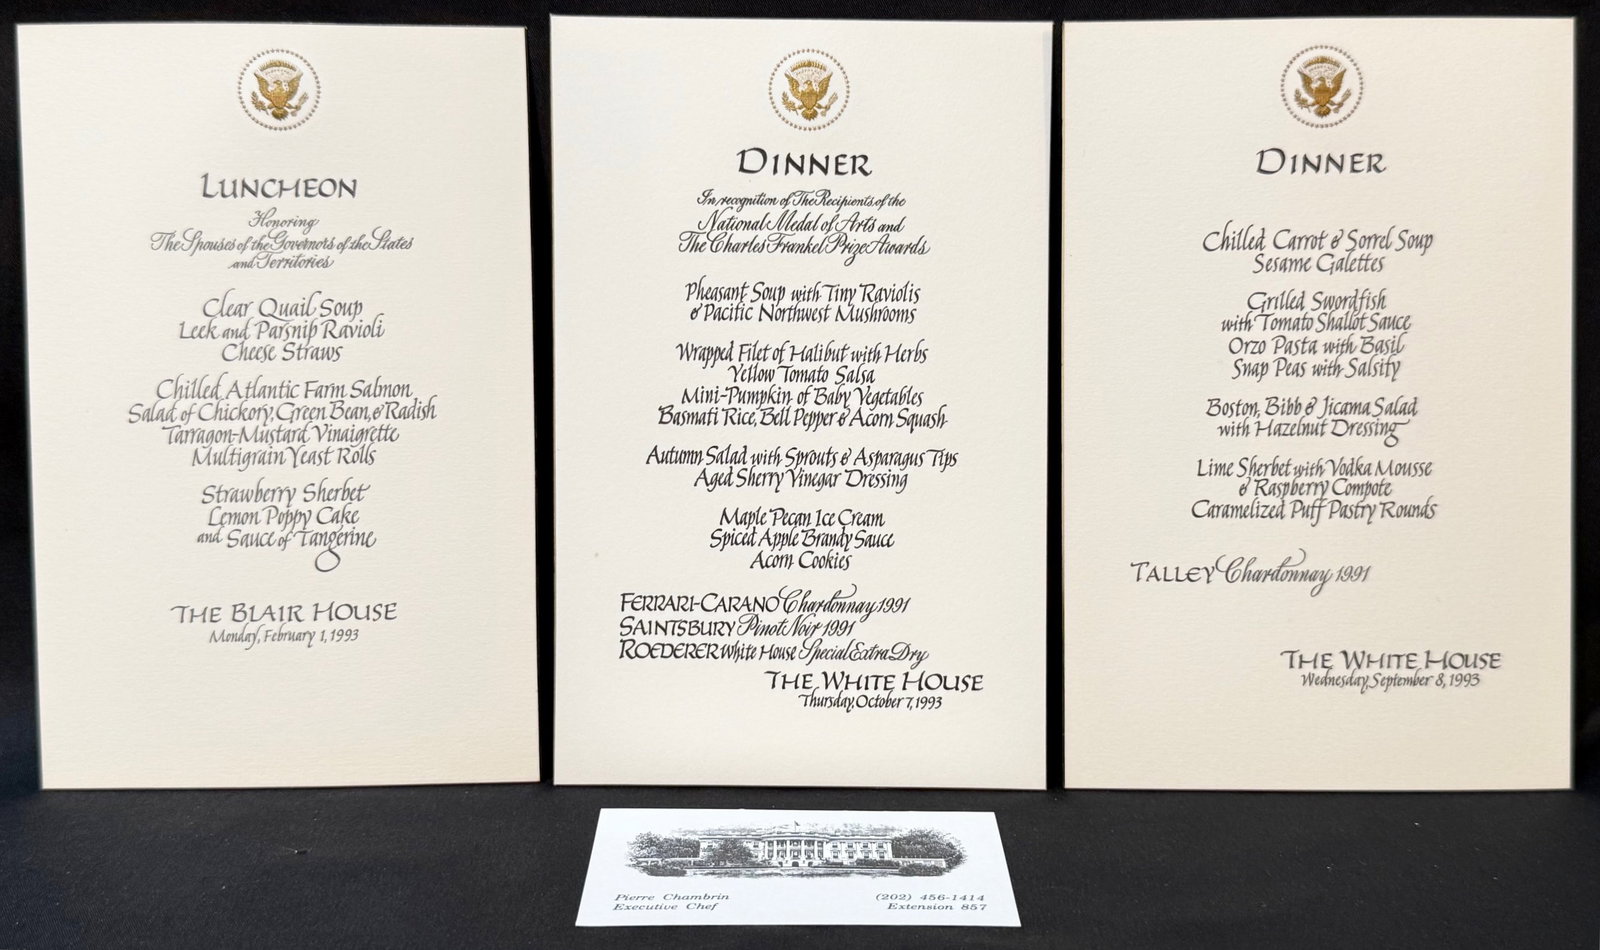 LUNCHEON
Honoring
The Spouses of the Governors of the States
and Territories
Clear Quail Soup
Leek and Parsnip Ravioli
Cheese Straws
Chilled Atlantic Farm Salmon
Salad of Chickory, Green Bean, & Radish
Tarragon-Mustard Vinaigrette
Multigrain Yeast Rolls
Strawberry Sherbet
Lemon Poppy Cake
and Sauce of Tangerine
THE BLAIR HOUSE
Monday, February 1, 1993
DINNER
In recognition of The Recipients of the
National Medal of Arts and
The Charles Frankel Prize Awards
Pheasant Soup with Tiny Raviolis
& Pacific Northwest Mushrooms
Wrapped Filet of Halibut with Herbs
Yellow Tomato Salsa
Mini-Pumpkin of Baby Vegetables
Basmati Rice, Bell Pepper & Acorn Squash
Autumn Salad with Sprouts & Asparagus Tips
Aged Sherry Vinegar Dressing
Maple Pecan Ice Cream
Spiced Apple Brandy Sauce
Acorn Cookies
FERRARI-CARANO Chardonnay 1991
SAINTSBURY Pinot Noir 1991
ROEDERER White House Special Extra Dry
THE WHITE HOUSE
Thursday, October 7, 1993
DINNER
Chilled Carrot & Sorrel Soup
Sesame Galettes
Grilled Swordfish
with Tomato Shallot Sauce
Orzo Pasta with Basil
Snap Peas with Salsify
Boston, Bibb & Jicama Salad
with Hazelnut Dressing
Lime Sherbet with Vodka Mousse
& Raspberry Compote
Caramelized Puff Pastry Rounds
TALLEY Chardonnay 1991
THE WHITE HOUSE
Wednesday, September 8, 1993
Pierre Chambrin
Executive Chef
(202) 456-1414
Extension 857